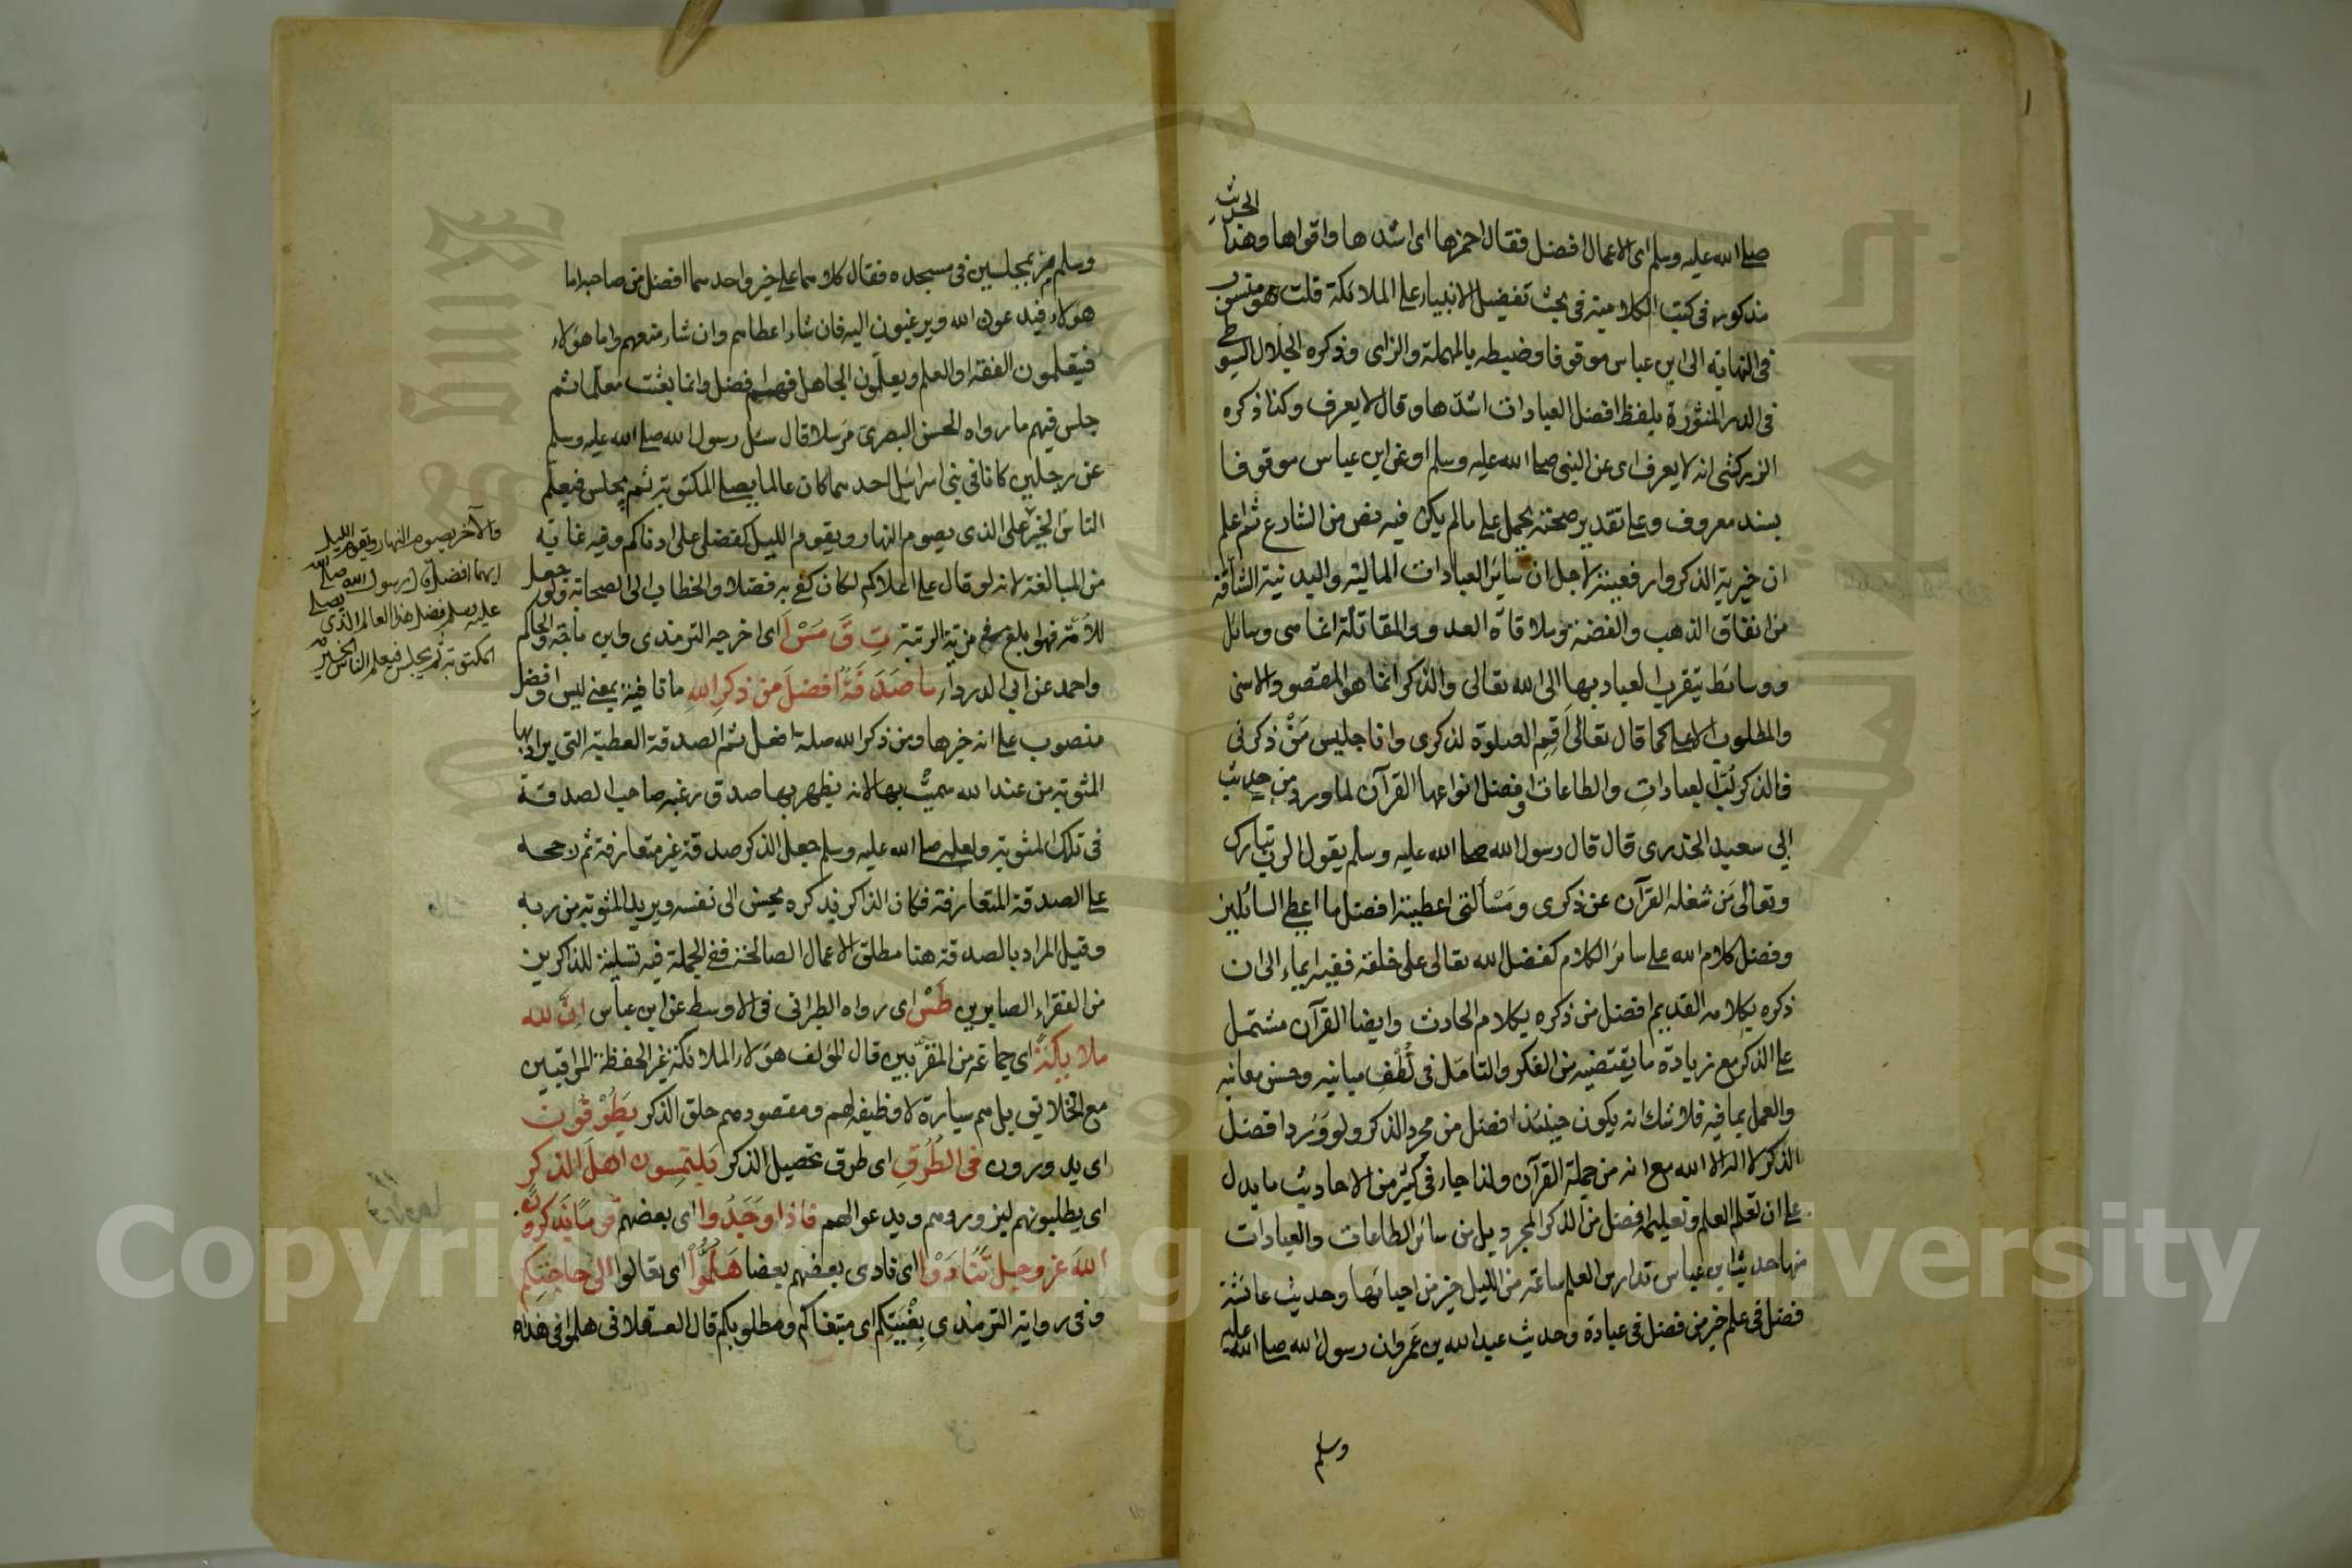 صلى الله عليه وسلم اى الاعمال افضل فقال احمزها اى اشدها واقواها وهذا الحديث
مذكور فى كتب الكلامية فى بحث تفضيل الانبياء على الملائكة قلت هو منسوب
فى النهاية الى ابن عباس موقوفا وضبطه بالمهملة والزاى وذكره الجلال السيوطى
فى الدرر المنثورة بلفظ افضل العبادات اشدها وقال لا يعرف وكذا ذكره
الزركشى انه لا يعرف اى عن النبى صلى الله عليه وسلم او عن ابن عباس موقوفا
بسند معروف وعلى تقدير صحته يحمل على ما لم يكن فيه نص من الشارع ثم اعلم
ان خيرية الذكر وارفعيته لاجل ان سائر العبادات المالية والبدنية الشاقة
من انفاق الذهب والفضة وملاقاة العدو والمقاتلة انما هى وسائل
ووسائط يتقرب العباد بها الى الله تعالى والذكر انما هو المقصود الاسنى
والمطلوب الاعلى كما قال تعالى اقم الصلوة لذكرى وانا جليس من ذكرنى
فالذكر لب العبادات والطاعات وافضل انواعها القرآن لما ورد من حديث
ابى سعيد الخدرى قال قال رسول الله صلى الله عليه وسلم يقول الرب تبارك
وتعالى من شغله القرآن عن ذكرى ومسألتى اعطيته افضل ما اعطى السائلين
وفضل كلام الله على سائر الكلام كفضل الله تعالى على خلقه ففيه ايماء الى ان
ذكره بكلامه القديم افضل من ذكره بكلام الحادث وايضا القرآن مشتمل
على الذكر مع زيادة ما يقتضيه من الفكر والتامل فى لطف مبانيه وحسن معانيه
والعمل بما فيه فلا شك انه يكون حينئذ افضل من مجرد الذكر ولو ورد افضل
الذكر لا اله الا الله مع انه من جملة القرآن ولذا جاء فى كثير من الاحاديث ما يدل
على ان تعلم العلم وتعليمه افضل من الذكر المجرد بل من سائر الطاعات والعبادات
منها حديث ابن عباس تدارس العلم ساعة من الليل خير من احيائها وحديث عائشة
فضل فى علم خير من فضل فى عبادة وحديث عبد الله بن عمرو ان رسول الله صلى الله عليه
وسلم
وسلم مر بمجلسين فى مسجده فقال كلاهما على خير واحدهما افضل من صاحبه اما
هؤلاء فيدعون الله ويرغبون اليه فان شاء اعطاهم وان شاء منعهم واما هؤلاء
فيتعلمون الفقه او العلم ويعلمون الجاهل فهم افضل وانما بعثت معلما ثم
جلس فيهم ما رواه الحسن البصرى مرسلا قال سئل رسول الله صلى الله عليه وسلم
عن رجلين كانا فى بنى اسرائيل احدهما كان عالما يصلى المكتوبة ثم يجلس فيعلم
الناس الخير على الذى يصوم النهار ويقوم الليل كفضلى على ادناكم وفيه غاية
من المبالغة لانه لو قال على اعلاكم لكان كفى به فضلا والخطاب الى الصحابة ولو جعل
للامة فهو ابلغ فى مزية الرتبة ت ق مس ا اى اخرجه الترمذى وابن ماجة والحاكم
واحمد عن ابى الدرداء ما صدقة افضل من ذكر الله ما نافية بمعنى ليس وافضل
منصوب على انه خبرها ومن ذكر الله صلة افضل ثم الصدقة العطية التى يراد بها
المثوبة من عند الله سميت بها لانه يظهر بها صدق رغبة صاحب الصدقة
فى تلك المثوبة ولعله صلى الله عليه وسلم جعل الذكر صدقة غير متعارفة ثم رجحه
على الصدقة المتعارفة فكان الذاكر بذكره محيش الى نفسه ويريد المثوبة من ربه
وقيل المراد بالصدقة هنا مطلق الاعمال الصالحة ففى الجملة فيه تسلية للذاكرين
من الفقراء الصابرين طس اى رواه الطبرانى فى الاوسط عن ابن عباس ان لله
ملائكة اى جماعة من المقربين قال المؤلف هؤلاء الملائكة غير الحفظة المراقبين
مع الخلائق بل هم سيارة لا وظيفة لهم ومقصودهم حلق الذكر يطوفون
اى يدورون فى الطرق اى طرق تحصيل الذكر يلتمسون اهل الذكر
اى يطلبونهم ليزوروهم ويدعوا لهم فاذا وجدوا اى بعضهم قوما يذكرون
الله عز وجل تنادوا اى نادى بعضهم بعضا هلموا اى تعالوا الى حاجتكم
وفى رواية الترمذى بغيتكم اى مبتغاكم ومطلوبكم قال العسقلانى هلموا فى هذه
والآخر يصوم النهار ويقوم الليل
ايهما افضل قال رسول الله صلى الله
عليه وسلم فضل هذا العالم الذى يصلى
المكتوبة ثم يجلس فيعلم الناس الخير
Copyright © King Saud University